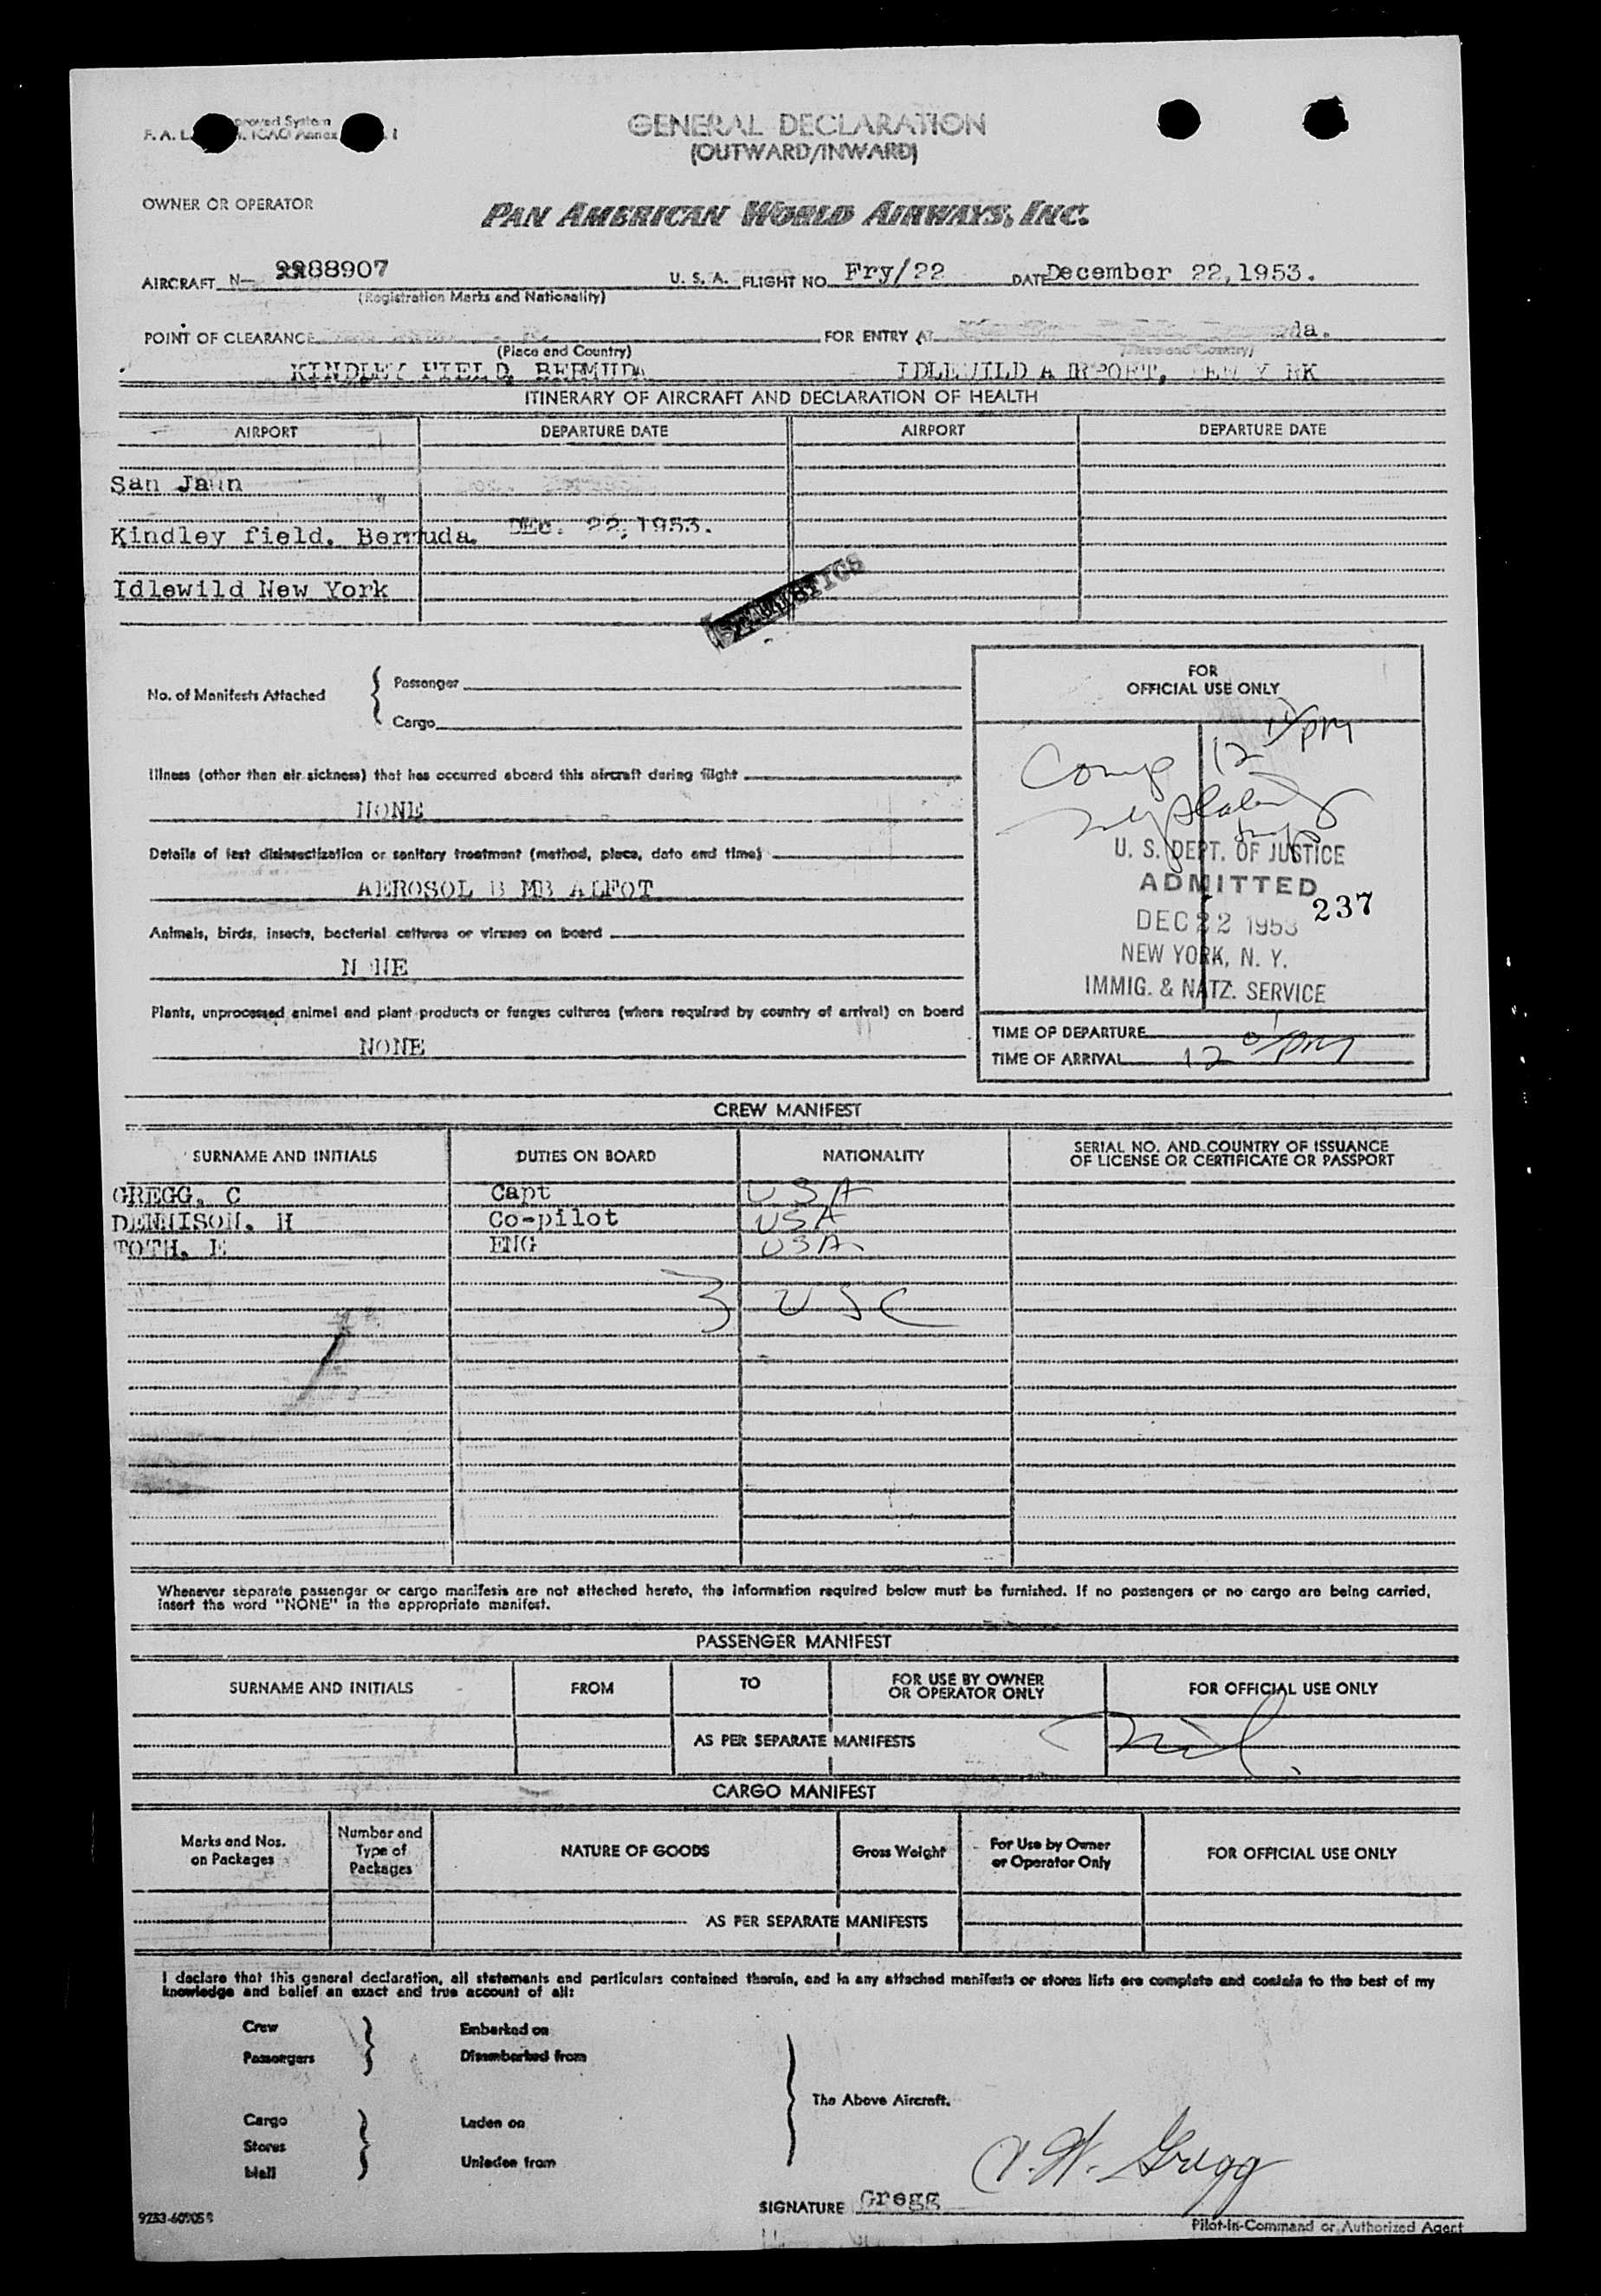 GENERAL DECLARATION
(OUTWARD/INWARD)
OWNER OR OPERATOR
PAN AMERICAN WORLD AIRWAYS, INC.
AIRCRAFT N— 88907 U. S. A. FLIGHT NO. Fry/22 DATE December 22,1953.
(Registration Marks and Nationality)
POINT OF CLEARANCE FOR ENTRY AT da.
(Place and Country) (Place and Country)
KINDLEY FIELD, BERMUDA IDLEWILD A IRPORT, NEW Y RK
ITINERARY OF AIRCRAFT AND DECLARATION OF HEALTH
AIRPORT DEPARTURE DATE AIRPORT DEPARTURE DATE
San Jaun
Kindley field. Bermuda. DEc. 22,1953.
Idlewild New York
STATISTICS
No. of Manifests Attached
Passenger
Cargo
Illness (other than air sickness) that has occurred aboard this aircraft during flight
NONE
Details of last disinsectization or sanitary treatment (method, place, date and time)
AEROSOL B MB ALFOT
Animals, birds, insects, bacterial cultures or viruses on board
N NE
Plants, unprocessed animal and plant products or fungus cultures (where required by country of arrival) on board
NONE
FOR
OFFICIAL USE ONLY
Comp 12 PM
U. S. DEPT. OF JUSTICE
ADMITTED
237
DEC 22 1953
NEW YORK, N. Y.
IMMIG. & NATZ. SERVICE
TIME OF DEPARTURE
TIME OF ARRIVAL 12 01 PM
CREW MANIFEST
SURNAME AND INITIALS DUTIES ON BOARD NATIONALITY SERIAL NO. AND COUNTRY OF ISSUANCE
OF LICENSE OR CERTIFICATE OR PASSPORT
GREGG, C Capt USA
DENNISON. H Co-pilot USA
TOTH, E ENG USA
3 USC
Whenever separate passenger or cargo manifests are not attached hereto, the information required below must be furnished. If no passengers or no cargo are being carried,
insert the word "NONE" in the appropriate manifest.
PASSENGER MANIFEST
SURNAME AND INITIALS FROM TO FOR USE BY OWNER
OR OPERATOR ONLY FOR OFFICIAL USE ONLY
AS PER SEPARATE MANIFESTS nil.
CARGO MANIFEST
Marks and Nos.
on Packages Number and
Type of
Packages NATURE OF GOODS Gross Weight For Use by Owner
or Operator Only FOR OFFICIAL USE ONLY
AS PER SEPARATE MANIFESTS
I declare that this general declaration, all statements and particulars contained therein, and in any attached manifests or stores lists are complete and contain to the best of my
knowledge and belief an exact and true account of all:
Crew Embarked on
Passengers Disembarked from
The Above Aircraft.
Cargo Laden on
Stores
Mail Unladen from
C. W. Gregg
SIGNATURE Gregg
Pilot-in-Command or Authorized Agent